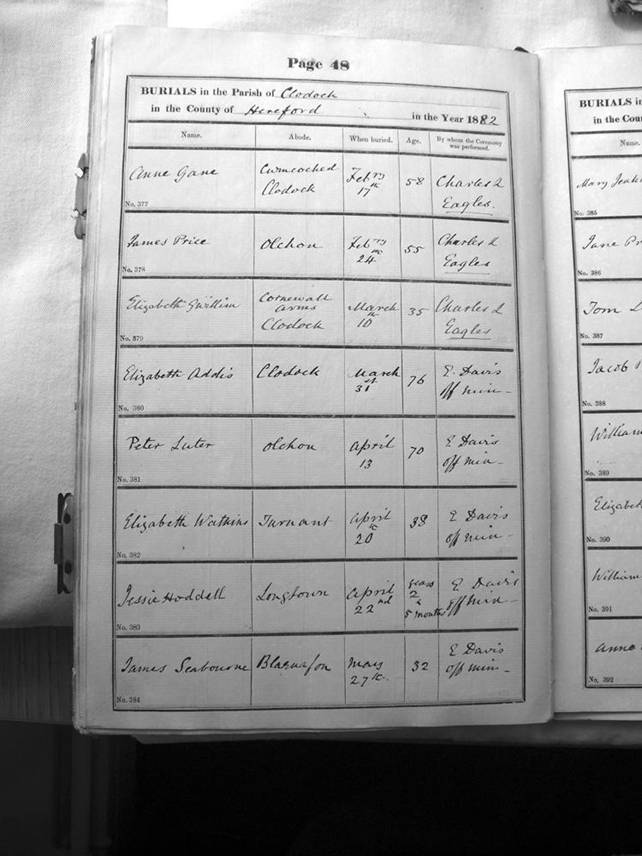 Page 48
BURIALS in the Parish of Clodock
in the County of Hereford in the Year 1882
Name. Abode. When buried. Age. By whom the Ceremony was performed.
Anne Gane Cwmcoched Febry 58 Charles L
Clodock 17th Eagles.
No. 377
James Price Olchon Febry 55 Charles L
24th Eagles
No. 378
Elizabeth Gwillim Cornewall March 35 Charles L
Arms 10th Eagles
Clodock
No. 379
Elizabeth Addis Clodock March 76 E. Davis
31st off min
No. 380
Peter Luter Olchon April 70 E Davis
13 off min
No. 381
Elizabeth Watkins Turnant April 38 E Davis
20th off min
No. 382
Jessie Hoddell Longtown April years E Davis
22nd 2 off min
& 5 months
No. 383
James Seabourne Blaenafon May 32 E Davis
27th off min
No. 384
BURIALS in
in the Coun
Name.
Mary
No. 385
Jane Pr
No. 386
Tom L
No. 387
Jacob
No. 388
William
No. 389
Elizabet
No. 390
William
No. 391
Anne
No. 392